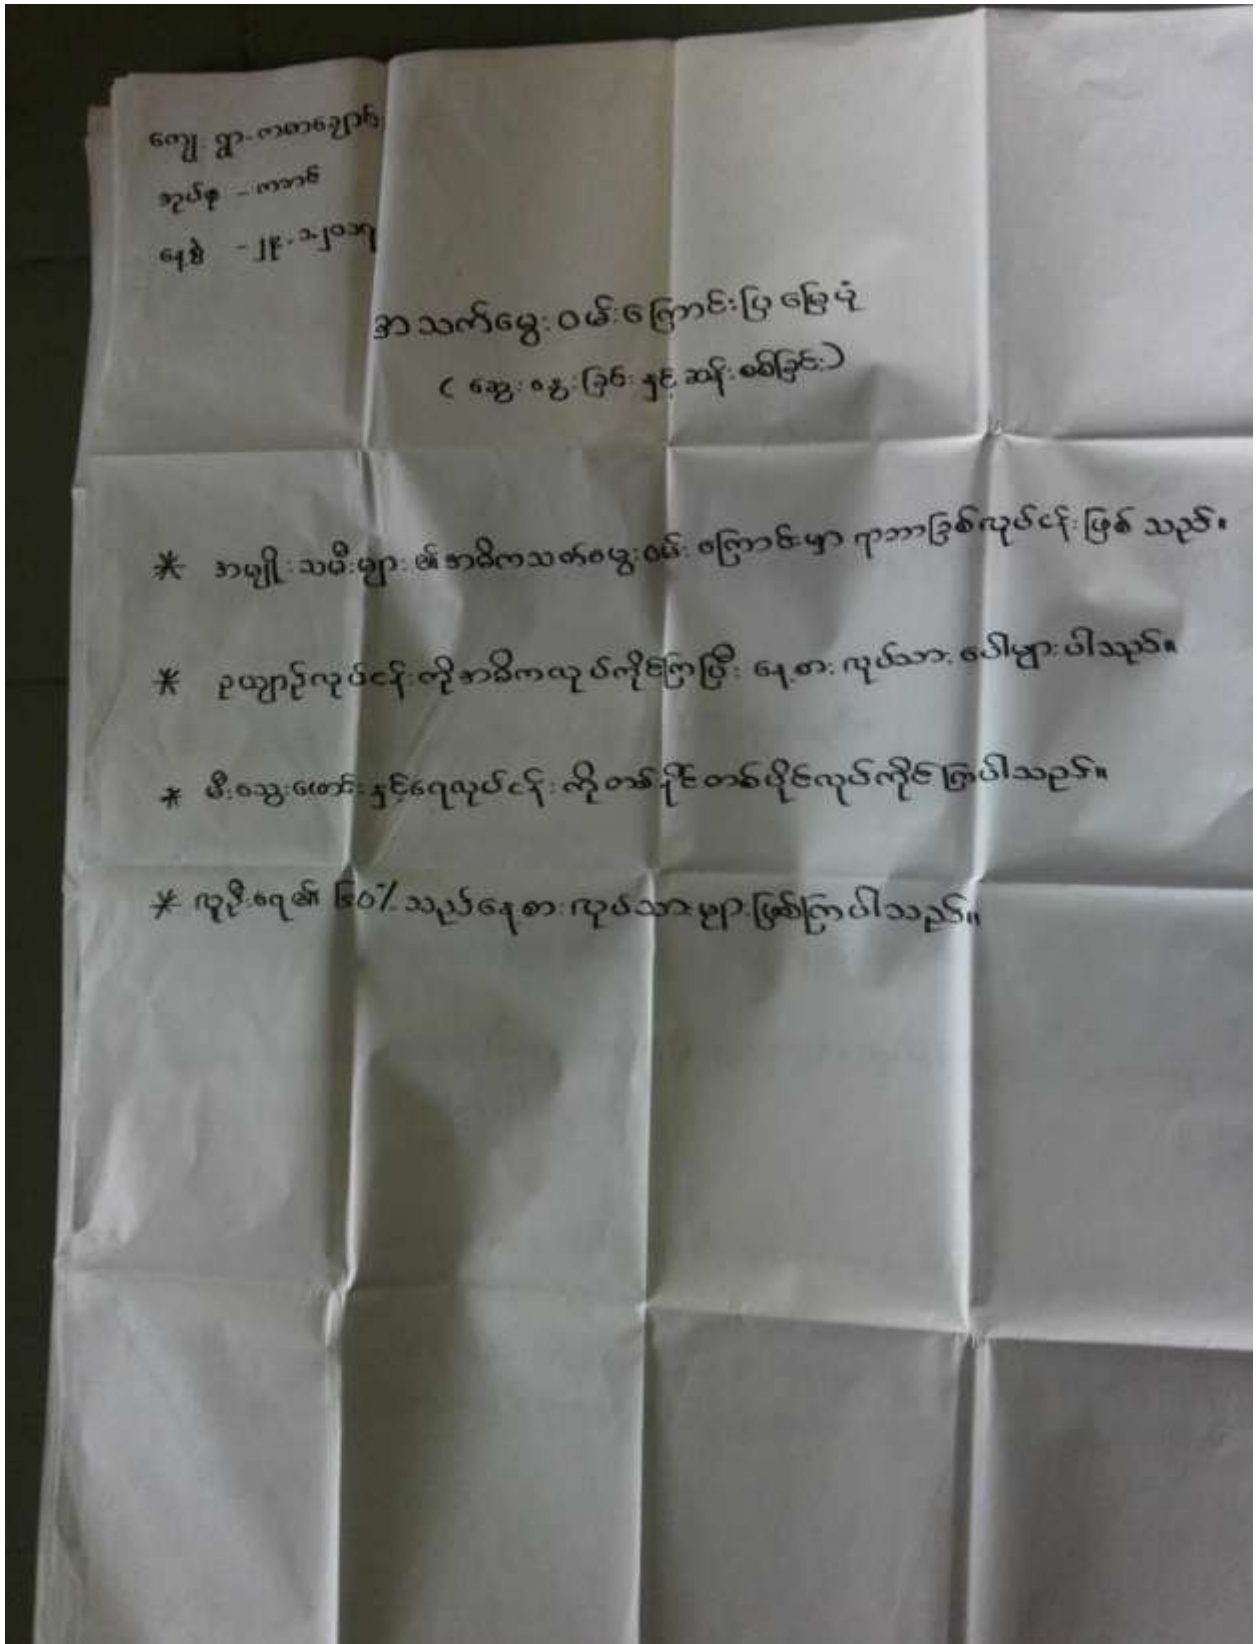 ကျေးရွာ - ကစာချောင်း
အုပ်စု - ကဘင်
နေ့စွဲ - ၂၄.၁.၂၀၁၇
အသက်မွေးဝမ်းကြောင်းပြမြေပုံ
(ဆွေးနွေးခြင်းနှင့်ဆန်းစစ်ခြင်း)
* အမျိုးသမီးများ၏အဓိကသက်မွေးဝမ်းကြောင်းမှာ ရာဘာခြစ်လုပ်ငန်းဖြစ်သည်။
* ဥယျာဉ်လုပ်ငန်းကိုအဓိကလုပ်ကိုင်ကြပြီး နေ့စားလုပ်သားပေါများပါသည်။
* မီးသွေးဖောင်းနှင့်ရေလုပ်ငန်းကိုတစ်နိုင်တစ်ပိုင်လုပ်ကိုင်ကြပါသည်။
* လူဦးရေ၏ ၆၀% သည်နေ့စားလုပ်သားများဖြစ်ကြပါသည်။